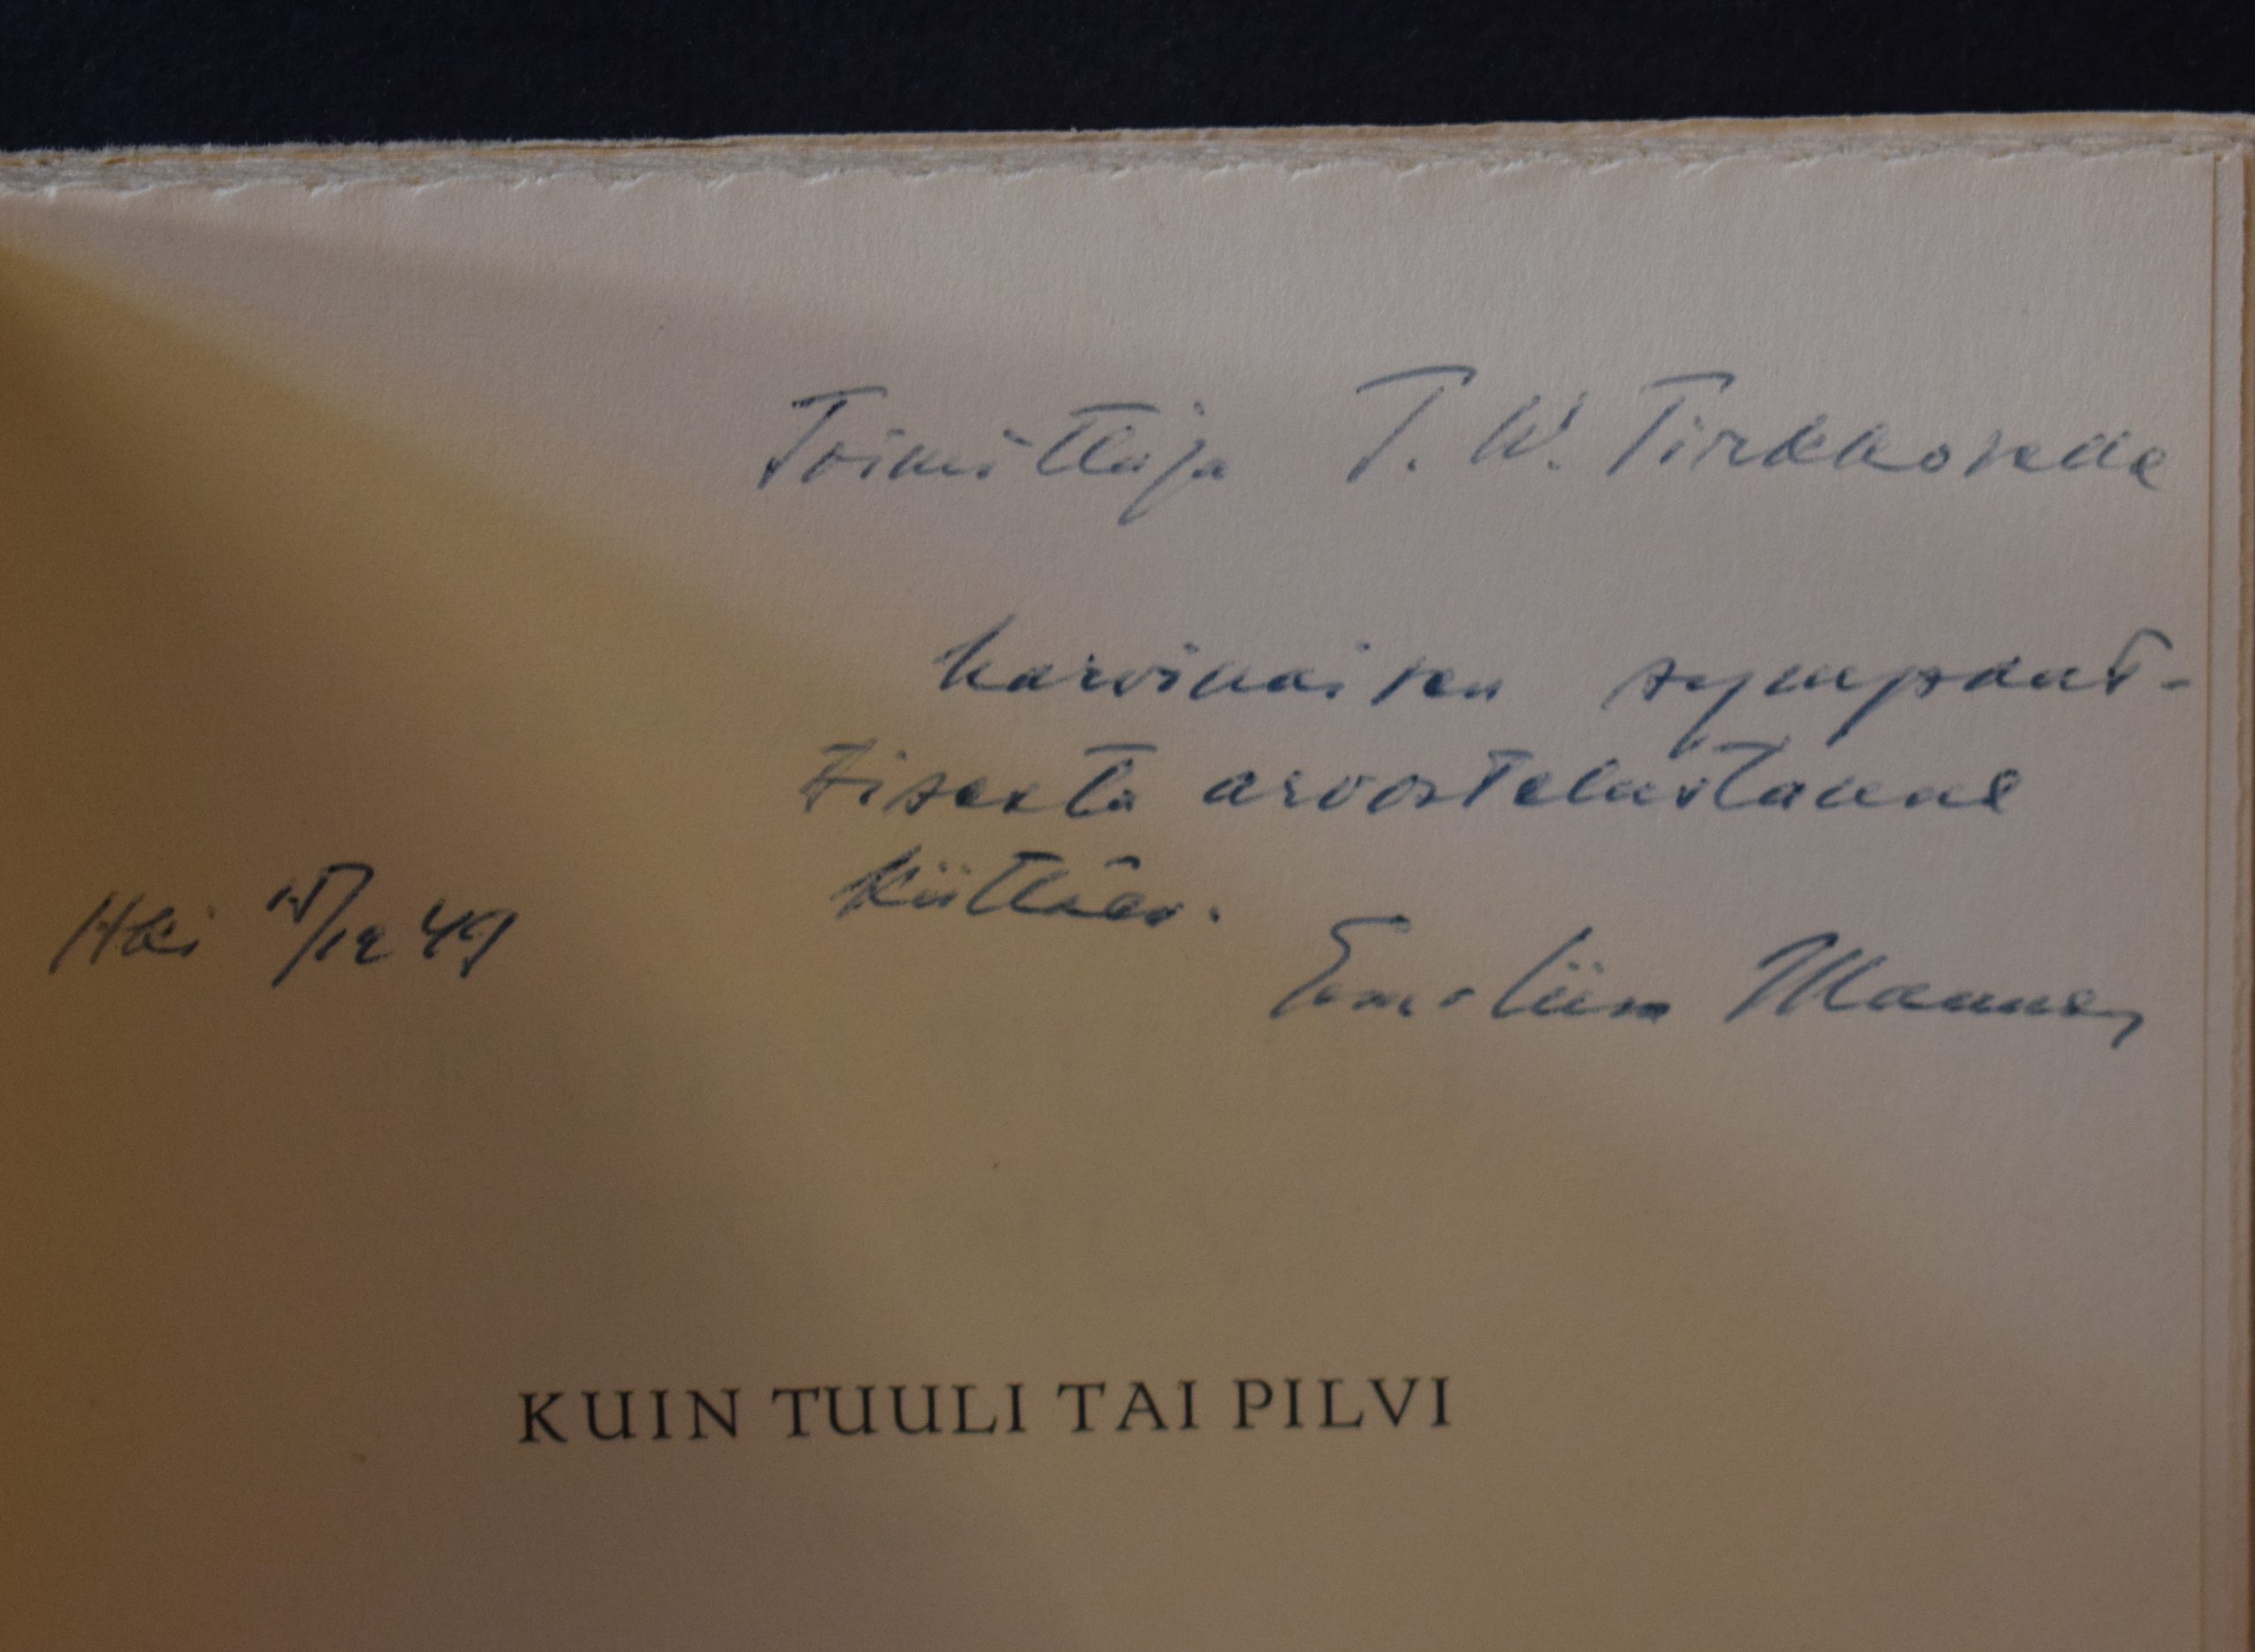 Toimittaja T. W. Tirkkoselle
harvinaisen sympaat-
tisesta arvostelustanne
kiittäen.
Hki 15/12 49
Eeva-Liisa Manner
KUIN TUULI TAI PILVI